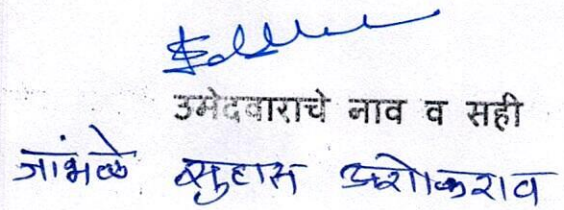 उमेदवाराचे नाव व सही
जांभळे सुहास अशोकराव